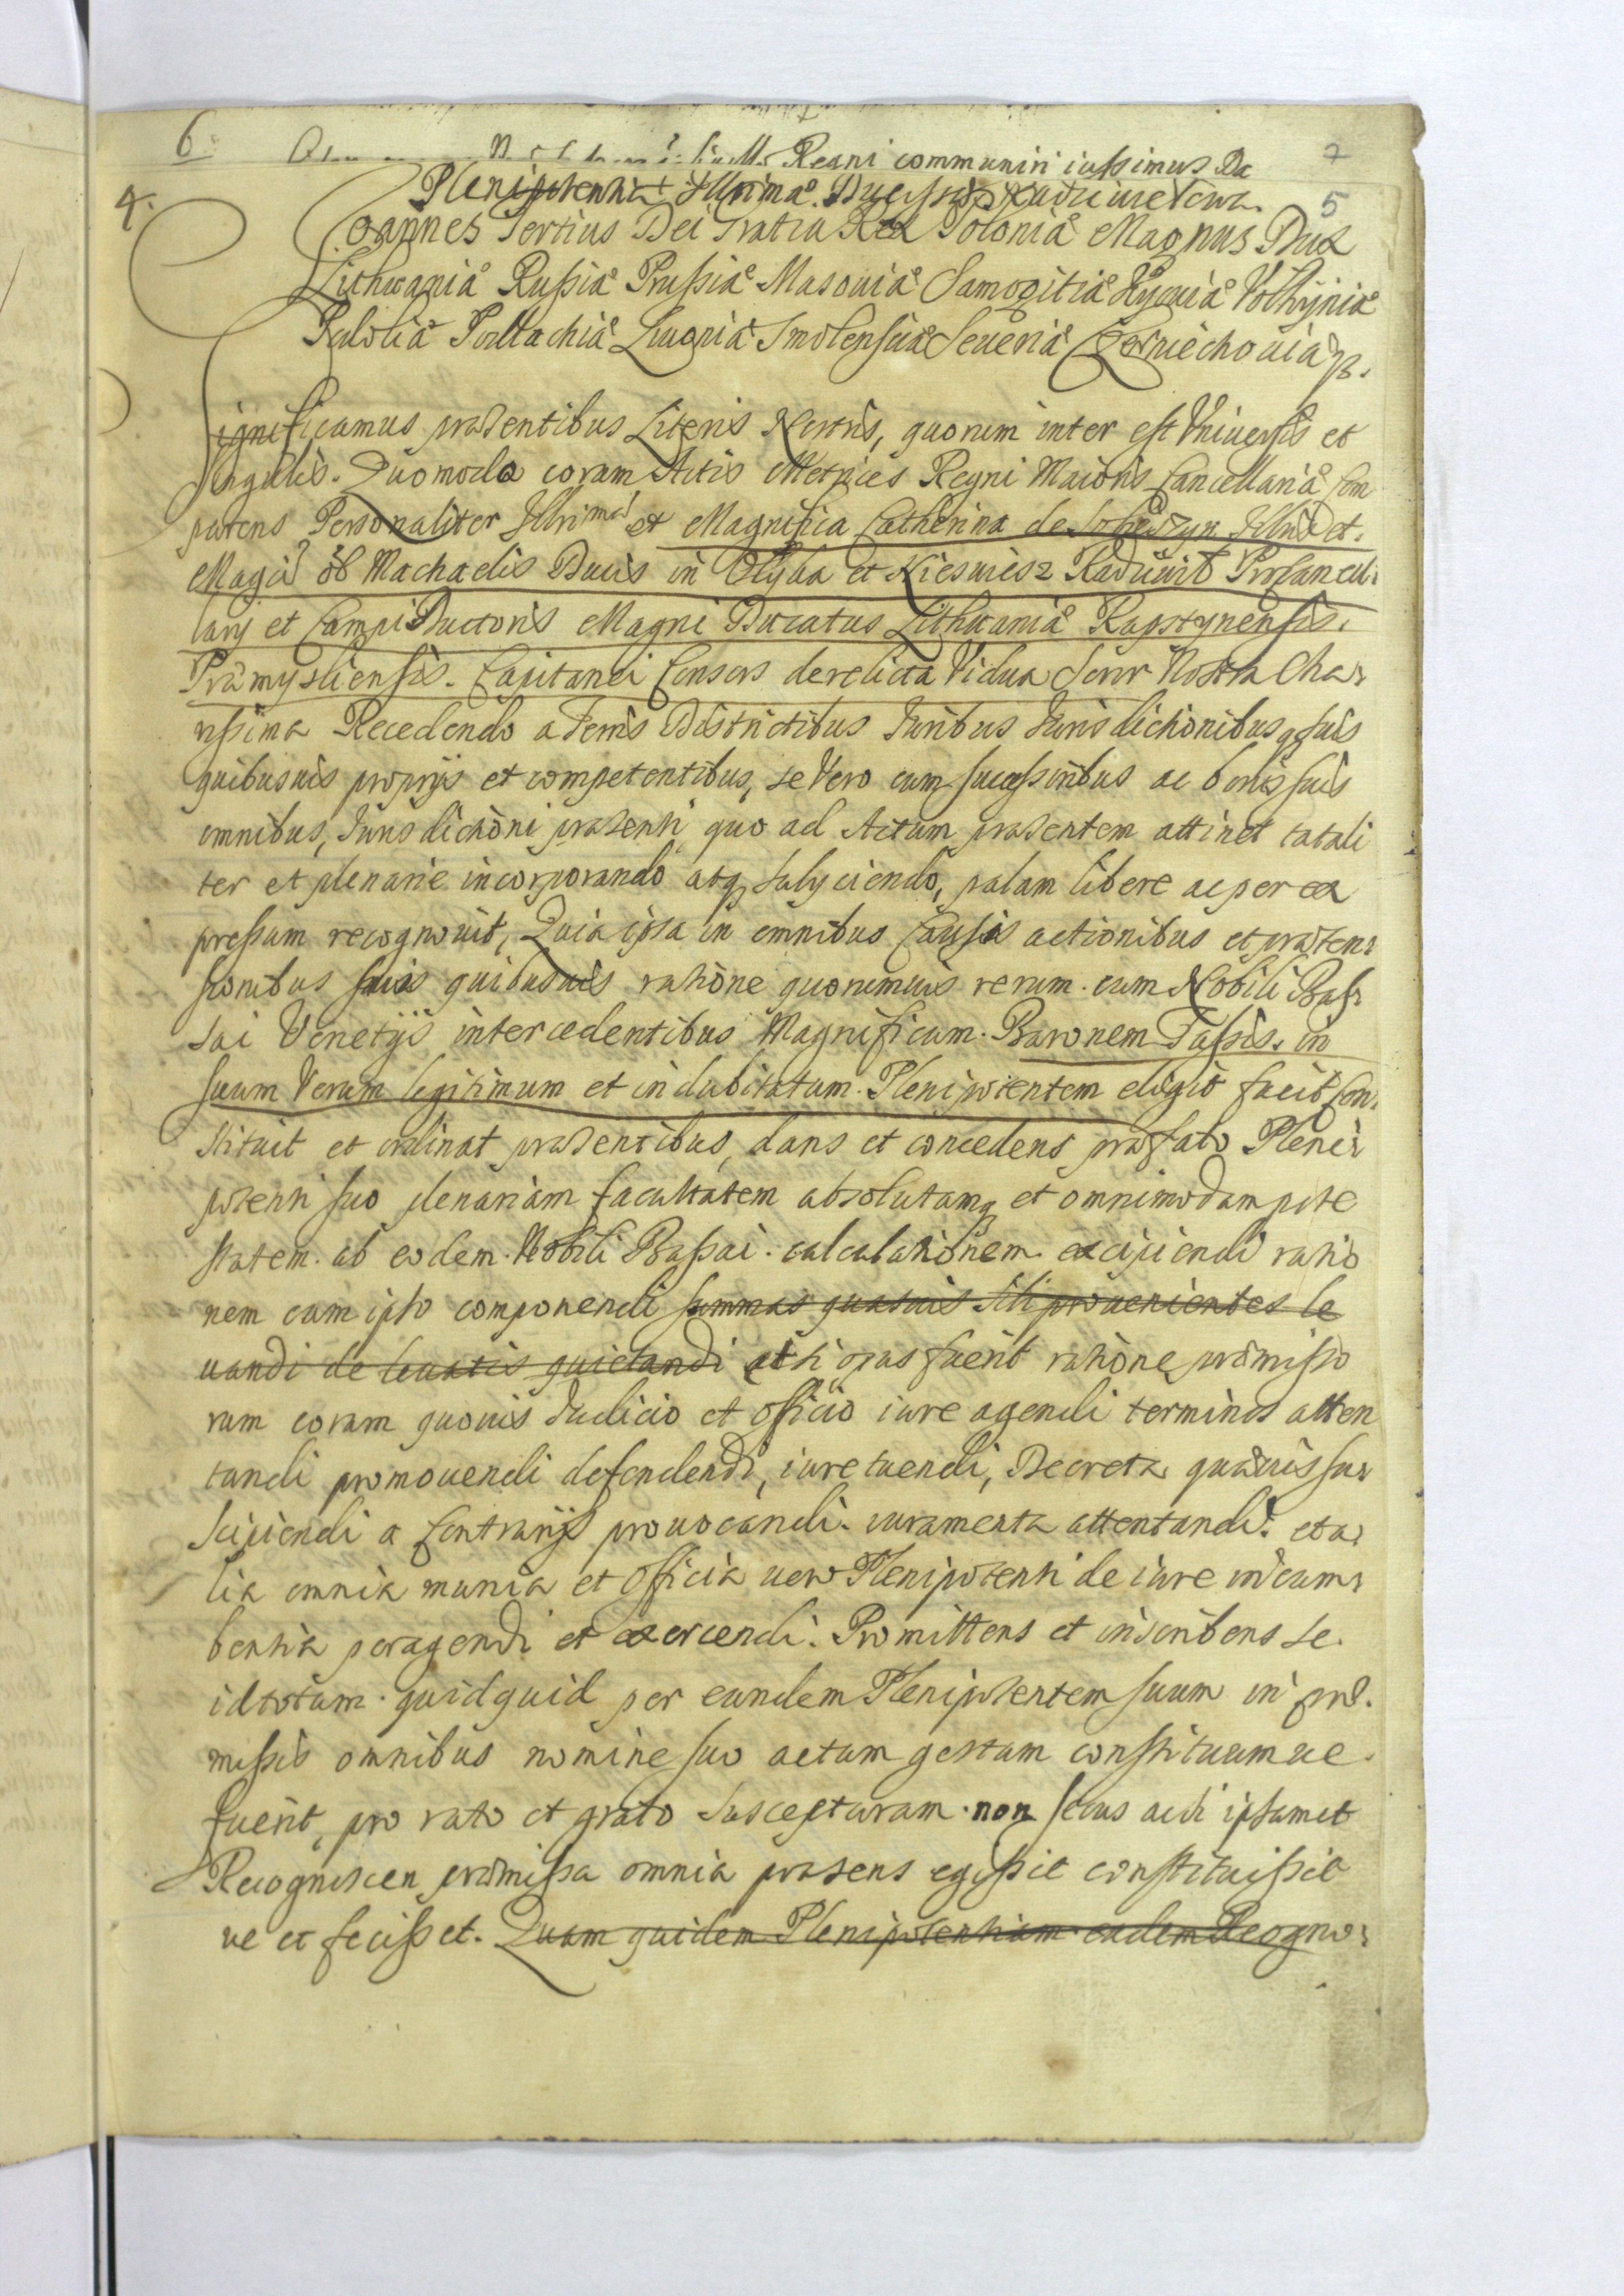 6 Regni communiri iussimus Da 7
4. Plenipotentia Illrimae Ducissae Radziwiłowa. 5
Joannes Tertius Dei Gratia Rex Poloniae Magnus Dux
Lithuaniae Russiae Prussiae Masouiae Samogitiae Kyouiae Volhyniae
Podoliae Podlachiae Liuoniae Smolensciae Seueriae Czerniechouiae
Significamus praesentibus Literis Nostris, quorum inter est Vniuersis et
singulis. Quomodo coram Actis Metrices Regni Maioris Cancellariae Com
parens Personaliter Illrima et Magnifica Catherina de Sobieszyn Illris et.
Magci ol Michaelis Ducis in Olyka et Niesuiesz Radziuił Procancell:
larij et Campi Ductoris Magni Ducatus Lithuaniae
Praemysliensis. Capitanei Consors derelicta Vidua Soror Nostra Cha:
rissima Recedendo a Terris Districtibus Juribus Jurisdictionibusq suis
quibusuis proprijs et competentibus, se Vero cum successoribus ac bonis suis
omnibus, Jurisdictioni praesenti quo ad Actum praesentem attinet totali
ter et plenarie incorporando atq subyciendo, palam libere ac per ex
pressum recognouit, Quia ipsa in omnibus Causis actionibus et praeten:
sionibus suis quibusuis ratione quorumuis rerum. cum Nobili Bas:
sai Venetijs intercedentibus Magnificum. Baronem Tassis. in
suum Verum legitimum et indubitatum. Plenipotentem eligit facit Con:
stituit et ordinat praesentibus, dans et concedens praefato Pleni:
potenti suo plenariam facultatem absolutamq et omnimodam pote
statem. ab eodem. Nobili Bassai. calculationem. excipiendi ratio
nem cum ipso componendi summas quasuis sibi prouenientes le
uandi de leuatis quietandi et si opus fuerit ratione praemisso
rum coram quouis Judicio et officio iure agendi terminos atten
tandi promouendi defendendi, iure tuendi, Decreta quaeuis sus
scipiendi a Contrarijs prouocandi. iuramenta attentandi. et a:
lia omnia munia et officia uero Plenipotenti de iure incum:
bentia peragendi et exercendi. Promittens et inscribens se.
id totum. quidquid per eundem Plenipotentem suum in prae.
missis omnibus nomine suo actum gestum constitutumue.
fuerit, pro rato et grato suscepturam. non secus ac si ipsamet
Recognoscen praemissa omnia praesens egissit constituissit
ue et fecisset. Quam quidem Plenipotentiam eadem Recogno: